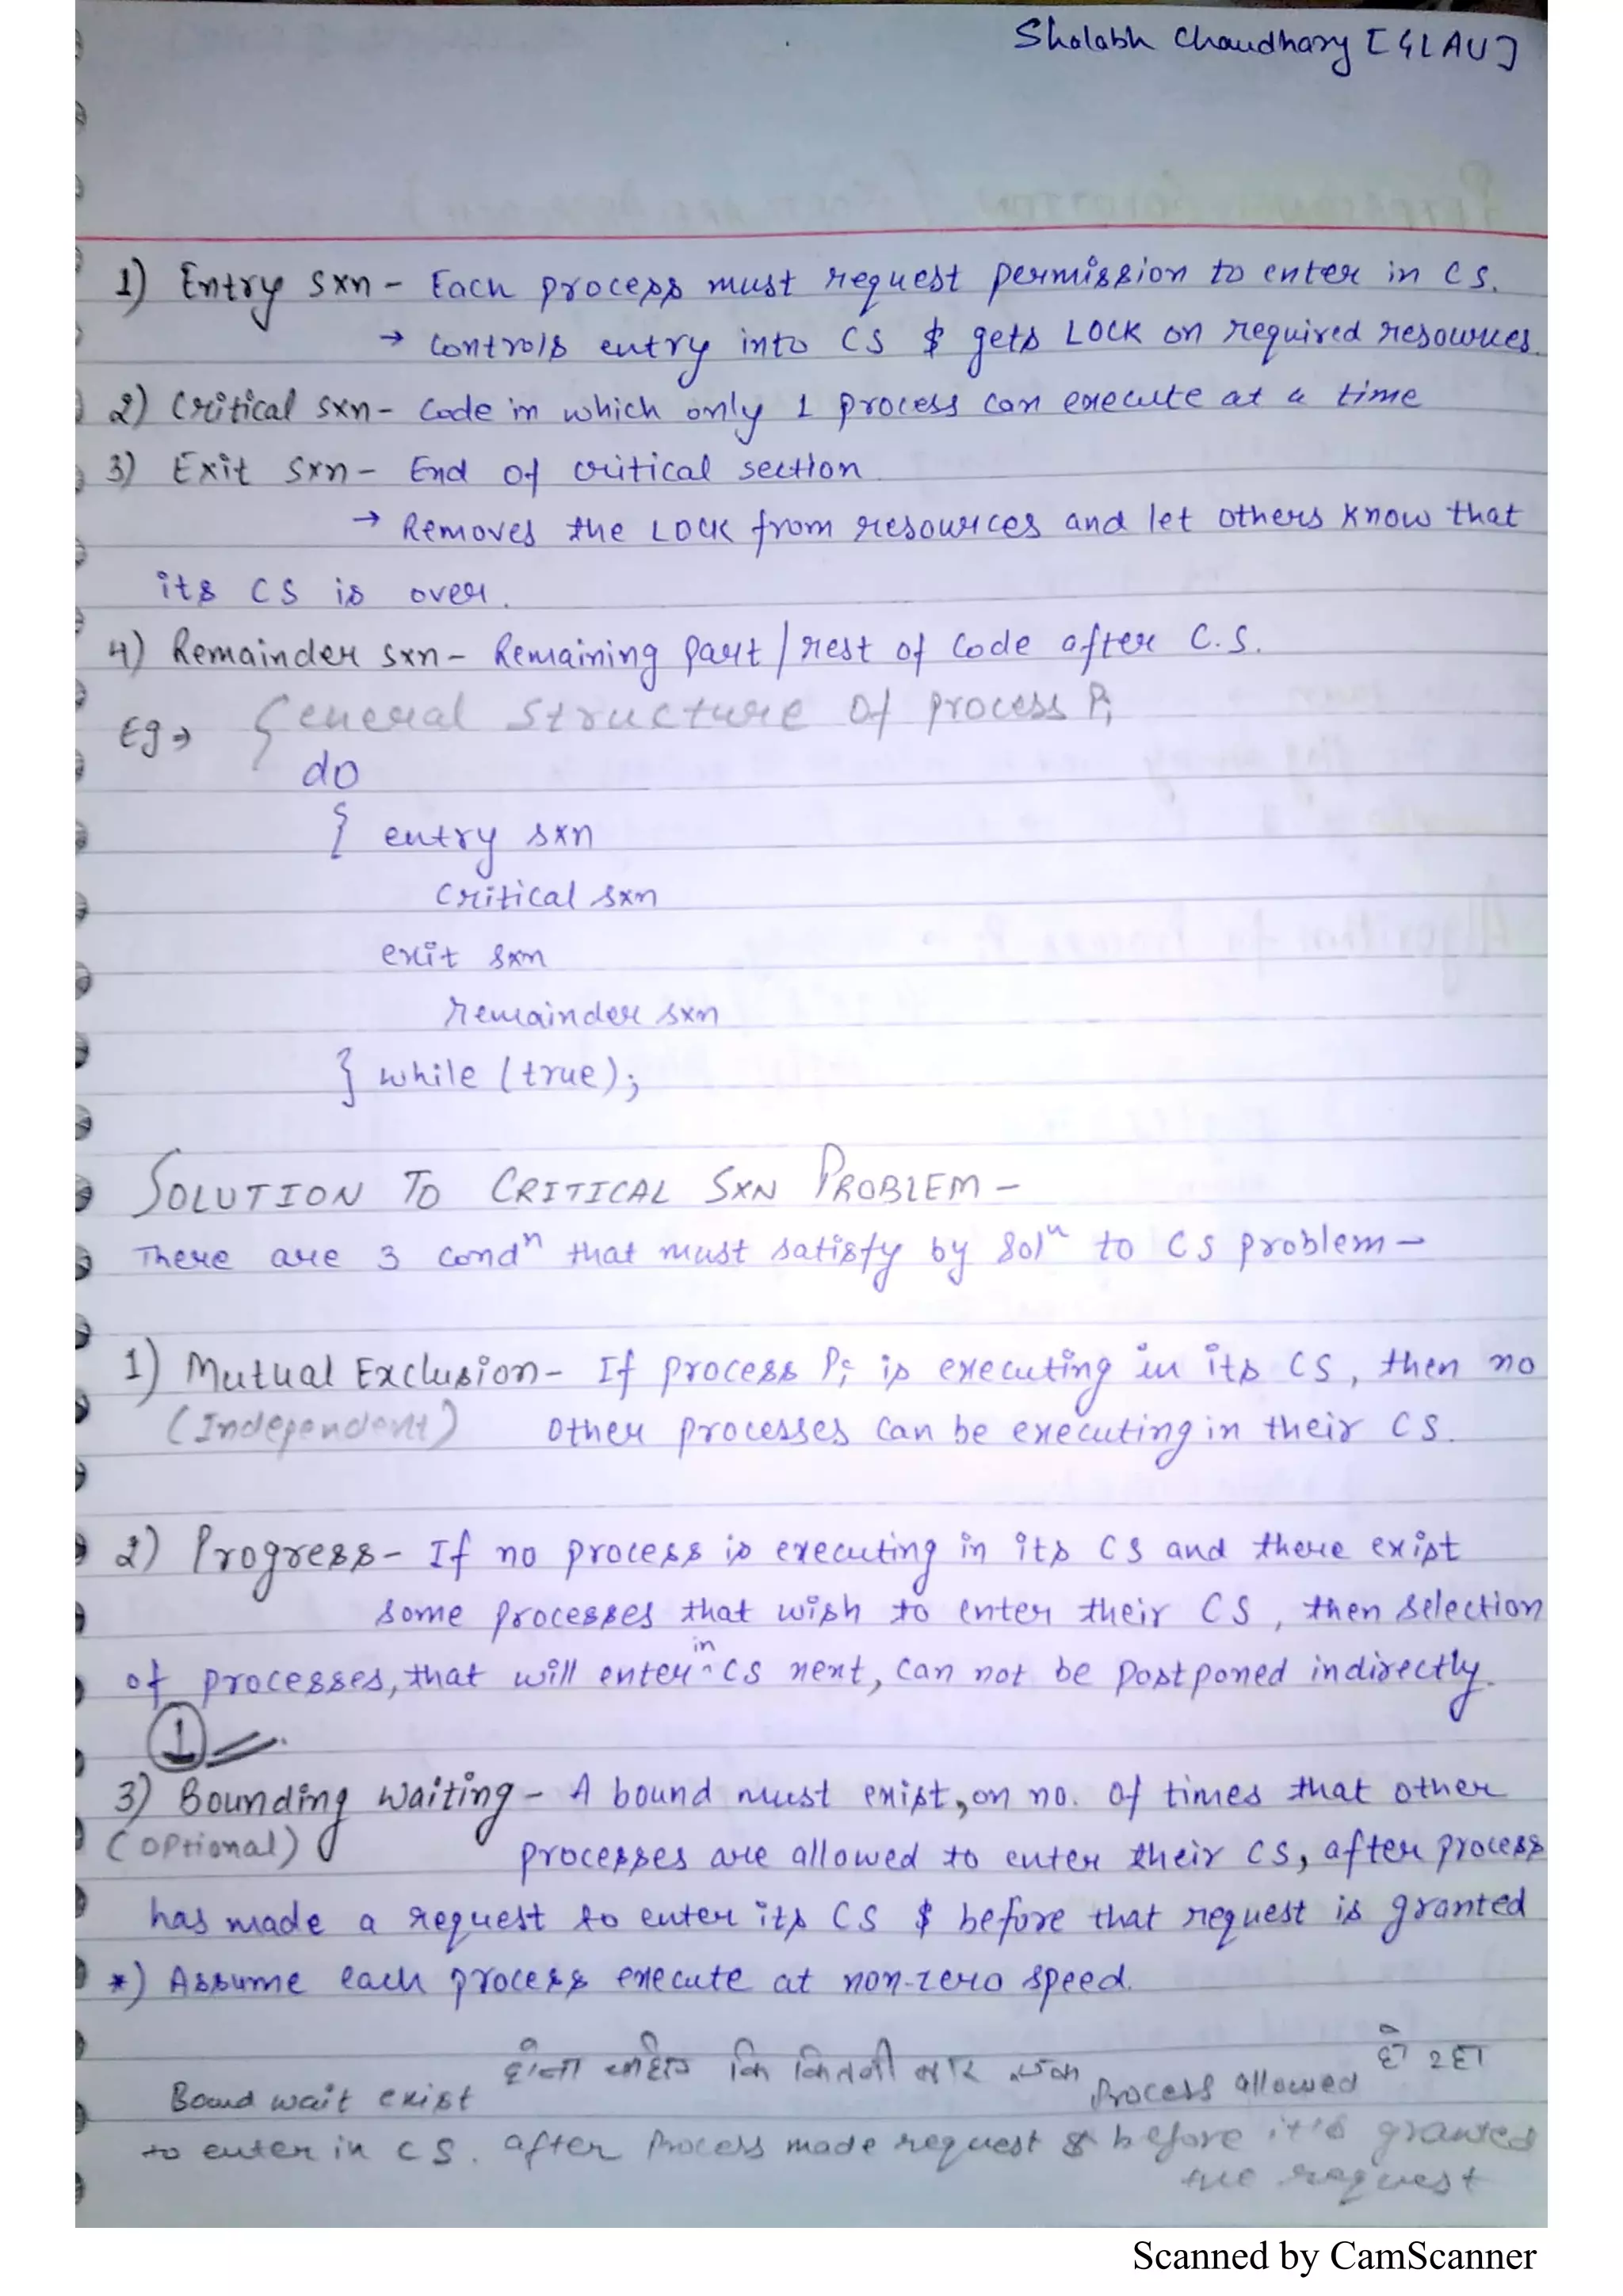 Shalabh Chaudhary [GLAU]
1) Entry sxn - Each process must request permission to enter in CS.
→ Controls entry into CS & gets LOCK on required resources.
2) Critical sxn - Code in which only 1 process can execute at a time
3) Exit sxn - End of critical section
→ Removes the LOCK from resources and let others know that
its CS is over.
4) Remainder sxn - Remaining part/rest of Code after C.S.
Eg → General Structure of process Pi
do
{ entry sxn
Critical sxn
exit sxn
remainder sxn
} while (true);
SOLUTION TO CRITICAL SXN PROBLEM -
There are 3 condⁿ that must satisfy by solⁿ to CS problem -
1) Mutual Exclusion - If process Pi is executing in its CS, then no
(Independent) other processes can be executing in their CS.
2) Progress - If no process is executing in its CS and there exist
some processes that wish to enter their CS, then selection
of processes, that will enter in CS next, can not be postponed indirectly.
1
3) Bounding Waiting - A bound must exist, on no. of times that other
(Optional) processes are allowed to enter their CS, after process
has made a request to enter its CS & before that request is granted
*) Assume each process execute at non-zero speed.
Bound wait exist होना चाहिए कि कितनी बार एक process allowed हो रहा
to enter in CS. after process made request & before it's granted
the request
Scanned by CamScanner